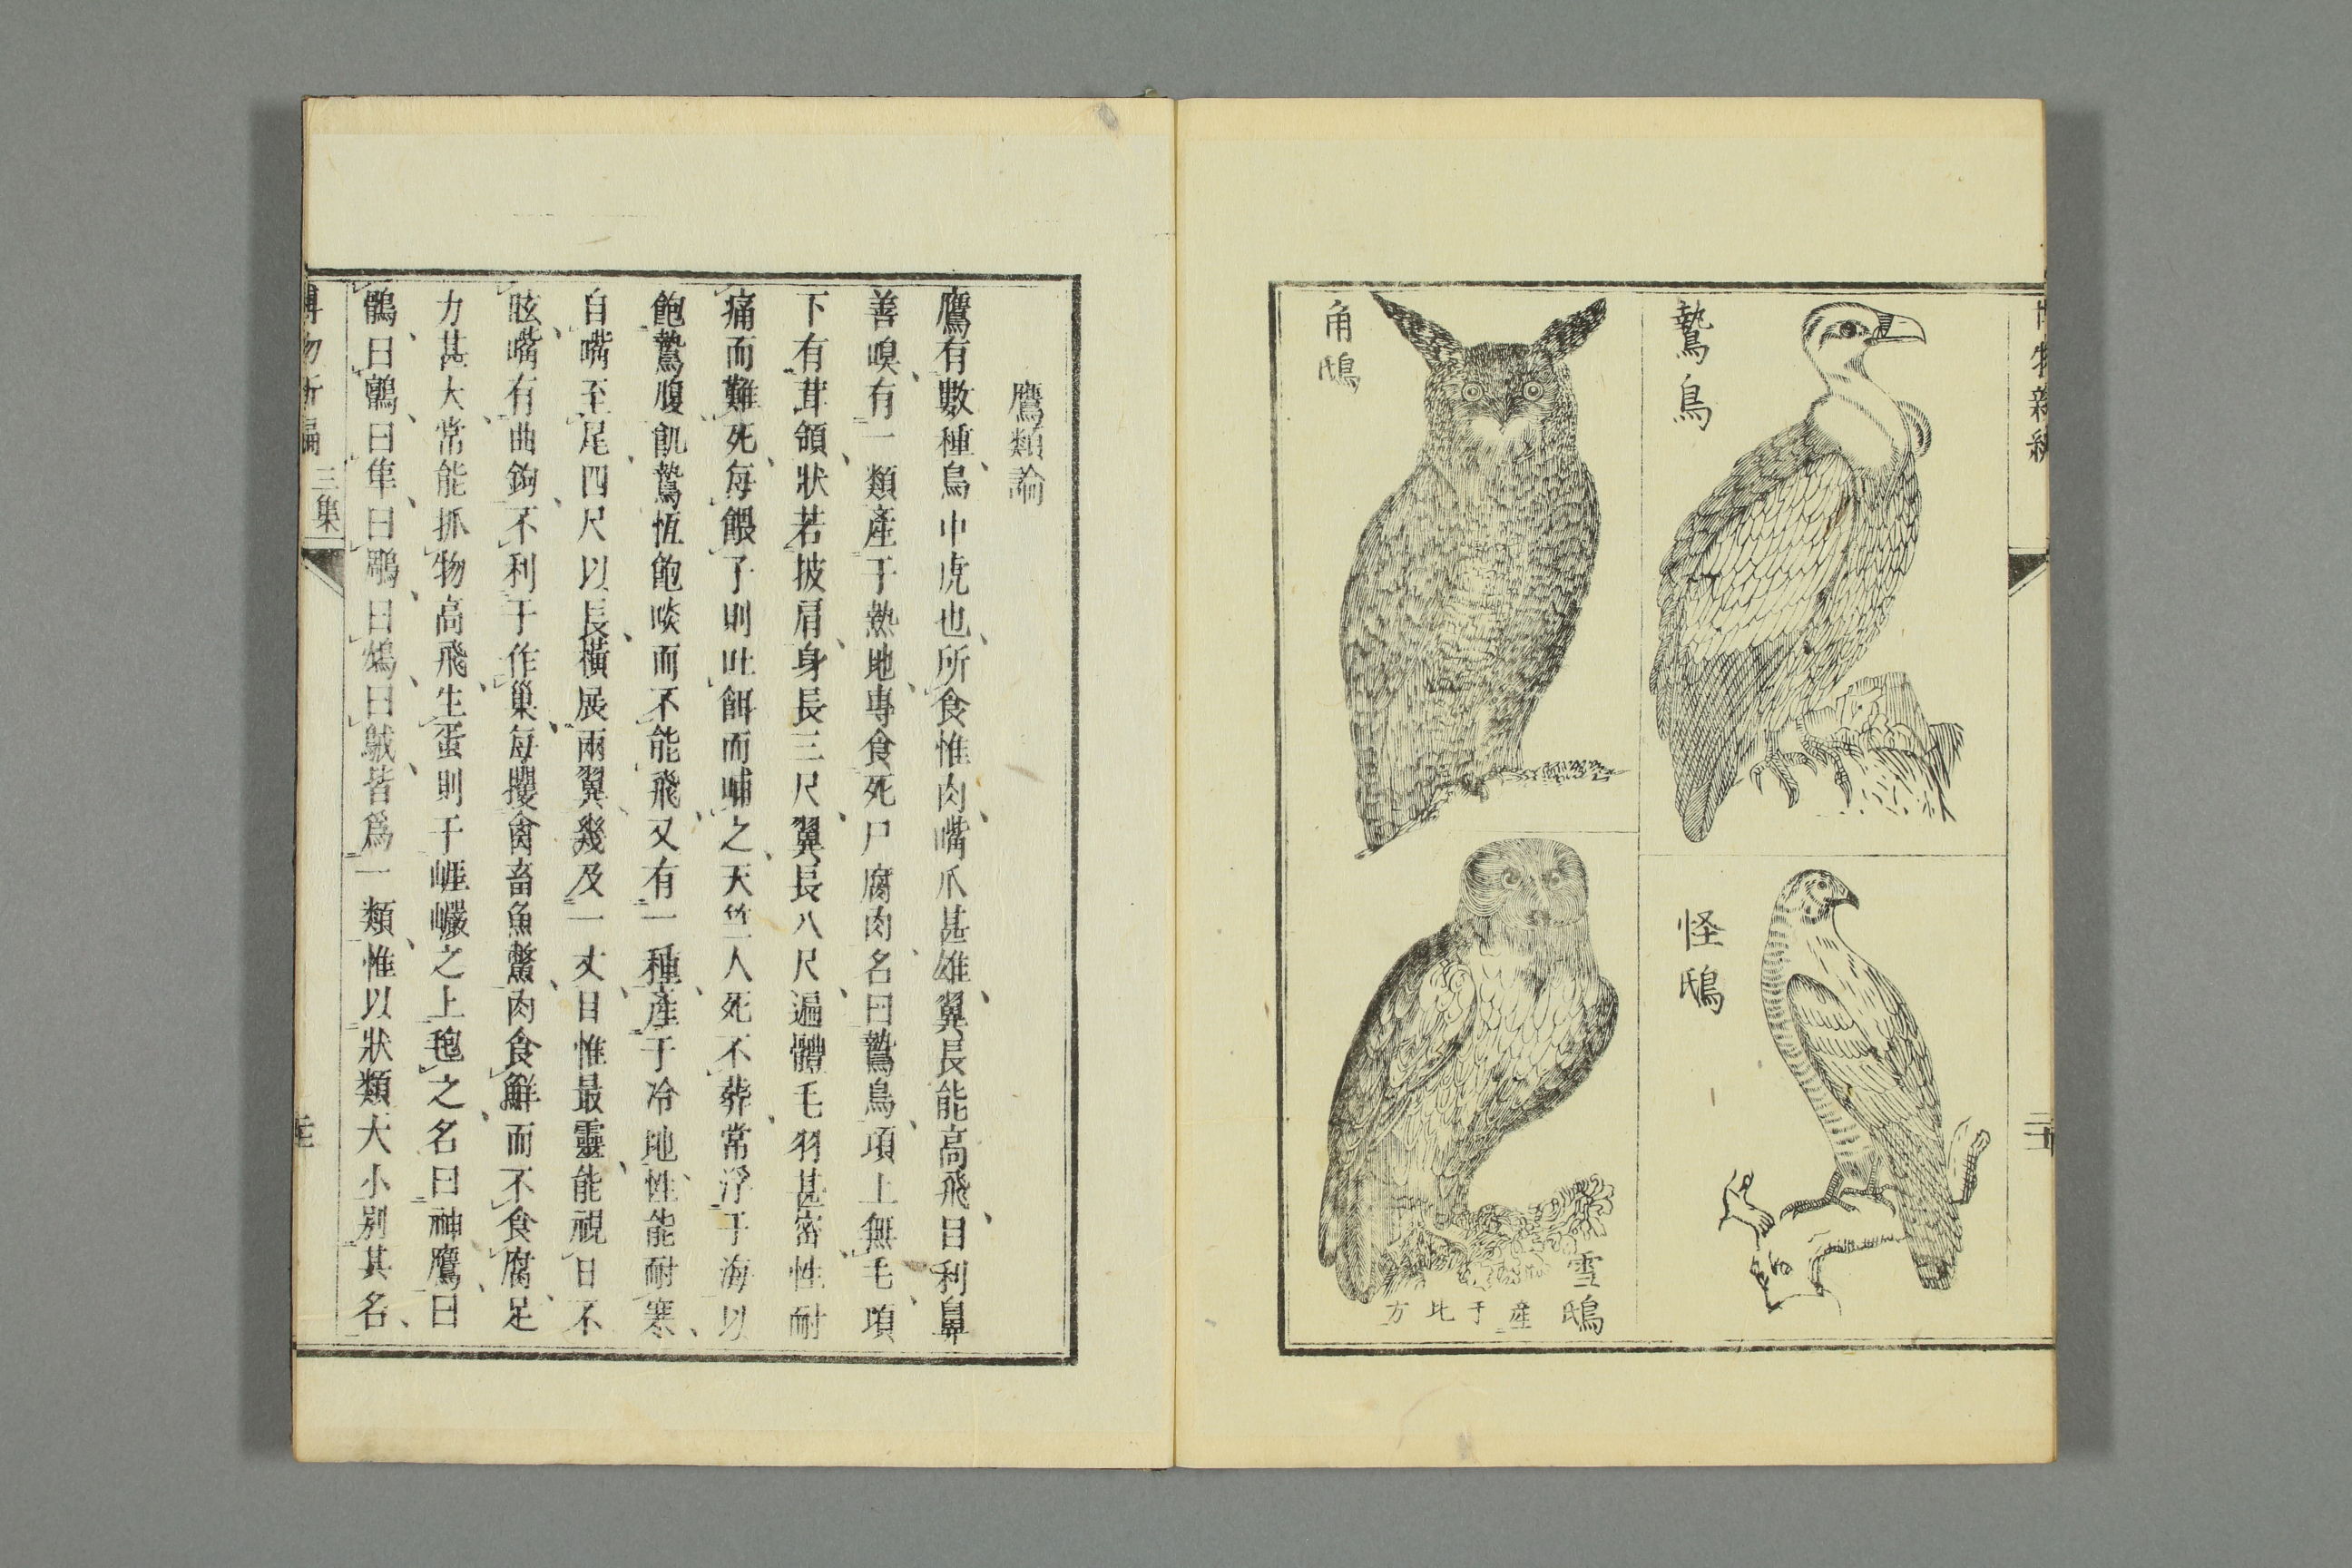 鷙鳥
角鴟
怪鴟
雪鴟
産于北方
鷹類論
鷹有數種鳥中虎也所食惟肉嘴爪甚雄翼長能高飛目利鼻
善嗅有一類産于熱地專食死尸腐肉名曰鷙鳥項上無毛項
下有茸領狀若披肩身長三尺翼長八尺遍體毛羽甚密性耐
痛而難死每餵子則吐餌而哺之天竺人死不葬常浮于海以
飽鷙腹飢鷙恆飽啖而不能飛又有一種産于冷地性能耐寒
自嘴至尾四尺以長橫展兩翼幾及一丈目惟最靈能視日不
眩嘴有曲鉤不利于作巢每攫禽畜魚鱉肉食鮮而不食腐足
力甚大常能抓物高飛生蛋則于崕巗之上毸之名曰神鷹曰
鶻曰鸇曰隼曰鵰曰鴆曰䲨皆爲一類惟以狀類大小別其名
博物新編
三集